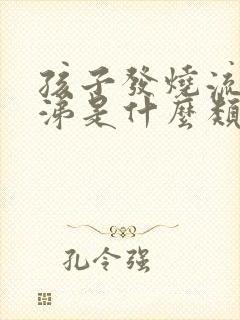 孩子發燒流
涕是什麼類
孔令强